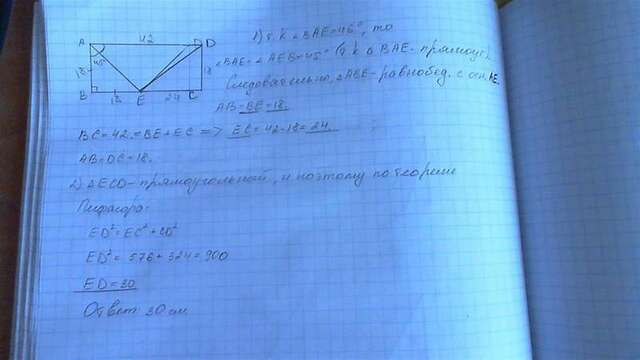 A 42 D
45°
18
B 18 E 24 C
1) т.к ∠BAE=45°, то
∠BAE=∠AEB=45° (т.к △BAE - прямоуг).
Следовательно, △ABE - равнобед. с осн. AE.
AB=BE=18.
BC=42=BE+EC => EC=42-18=24.
AB=DC=18.
2) △ECD - прямоугольный, и поэтому по теореме
Пифагора:
ED²=EC²+CD²
ED²=576+324=900
ED=30
Ответ 30 см